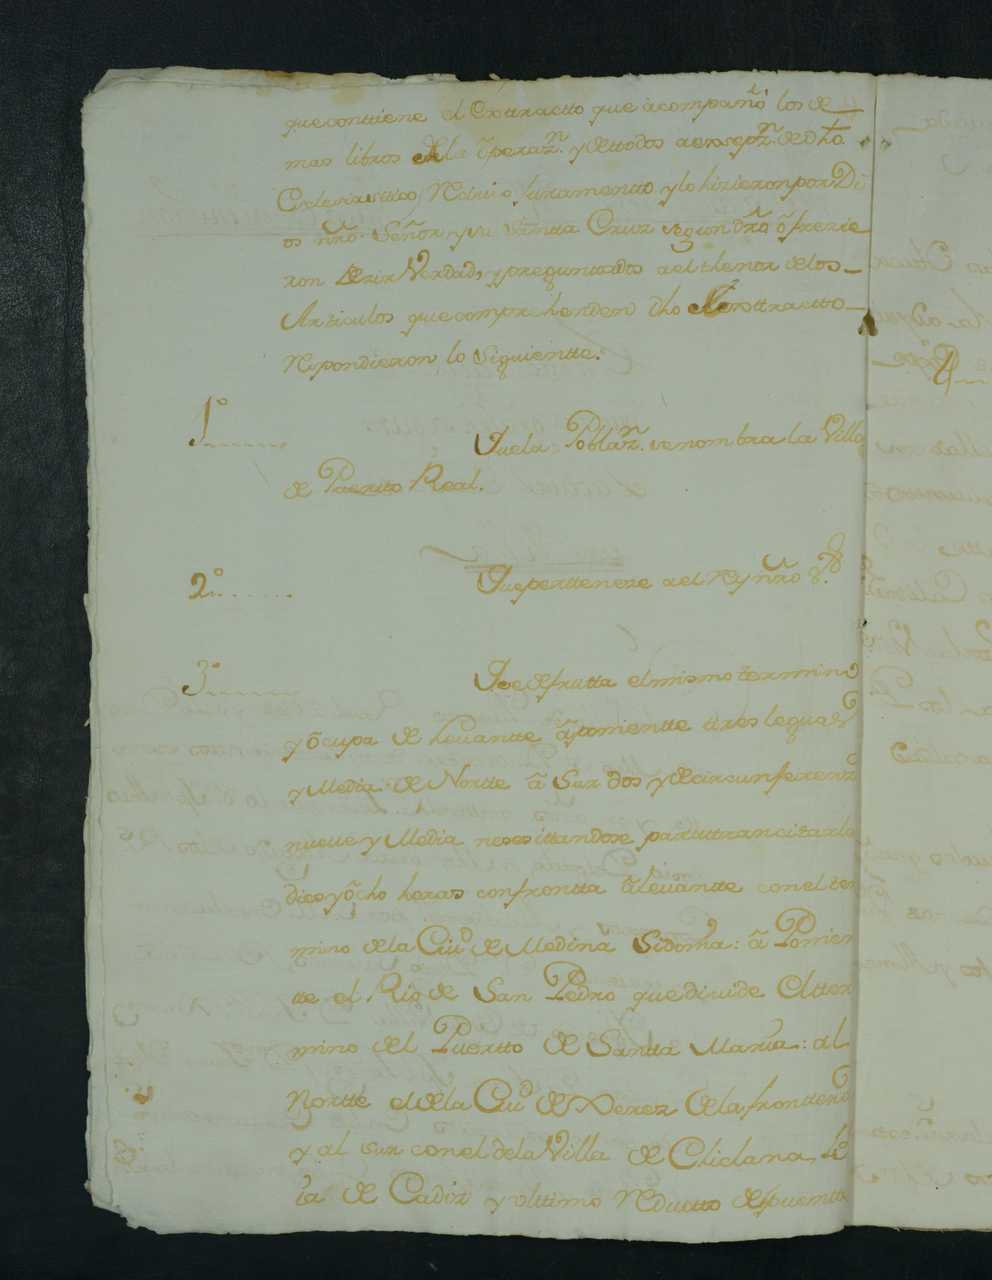 que conttiene el Exttractto que àcompañó los de
mas libros de la òperaz.n y de ttodos a excepz.n de d.ho
Eclesiasttico, Reciuio Juramentto y lo hizieron por Di
os nrõ Señor y su santta Cruz segun drõ ofrezie
ron dezir Verdad, y preguntados a el thenor de los
Articulos que comprehenden dho Exsttractto
Respondieron lo siguientte.
1º...... Que la Poblaz.n se nombra la Villa
de Puertto Real.
2º...... Que pertteneze a el Rey nrõ S.r
3º...... Que desfrutta el mismo termino
y òcupa de leuantte à ponientte tres leguas
y Media de Nortte à Sur dos y de circunferenz.a
nueue y Media nesesittandose para ttranzitarlo
dies y òcho horas confrontta à leuantte con el ter
mino de la Ciu.d de Medina Sidonia: à Ponien
tte el Rio de San Pedro que diuide el tter
mino del Puertto de Santta Maria: al
Nortte el de la Ciu.d de Xerez de la fronttera
y al sur con el de la Villa de Chiclana,
ia de Cadiz y vlttimo Reductto de Puentte